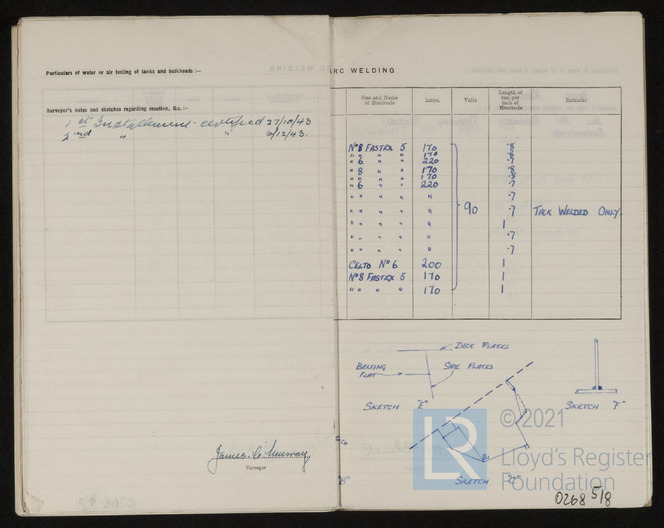 Particulars of water or air testing of tanks and bulkheads :—
Surveyor's notes and sketches regarding erection, &c. :—
1st Installment - certified 27/10/43
2nd " " 6/12/43.
Surveyor
ARC WELDING
Size and Name of Electrode Amps. Volts Length of run per inch of Electrode Remarks
Nº8 FASTEX 5 170 ·8
" " " " 170 ·8
" 6 " " 220 ·7
" 8 " " 170 ·8
" " " " 170 ·8
" 6 " " 220 ·7
" " " " " ·7
" " " " " 90 ·7 TACK WELDED ONLY.
" " " " " 1
" " " " " ·7
" " " " " ·7
CELTO Nº6 200 1
Nº8 FASTEX 5 170 1
" " " " 170 1
DECK PLATES
BELTING FLAT
SIDE PLATES
SKETCH "E"
SKETCH "F"
SKETCH "G"
"B"
LR
©2021
Lloyd's Register
Foundation
0268 5/8